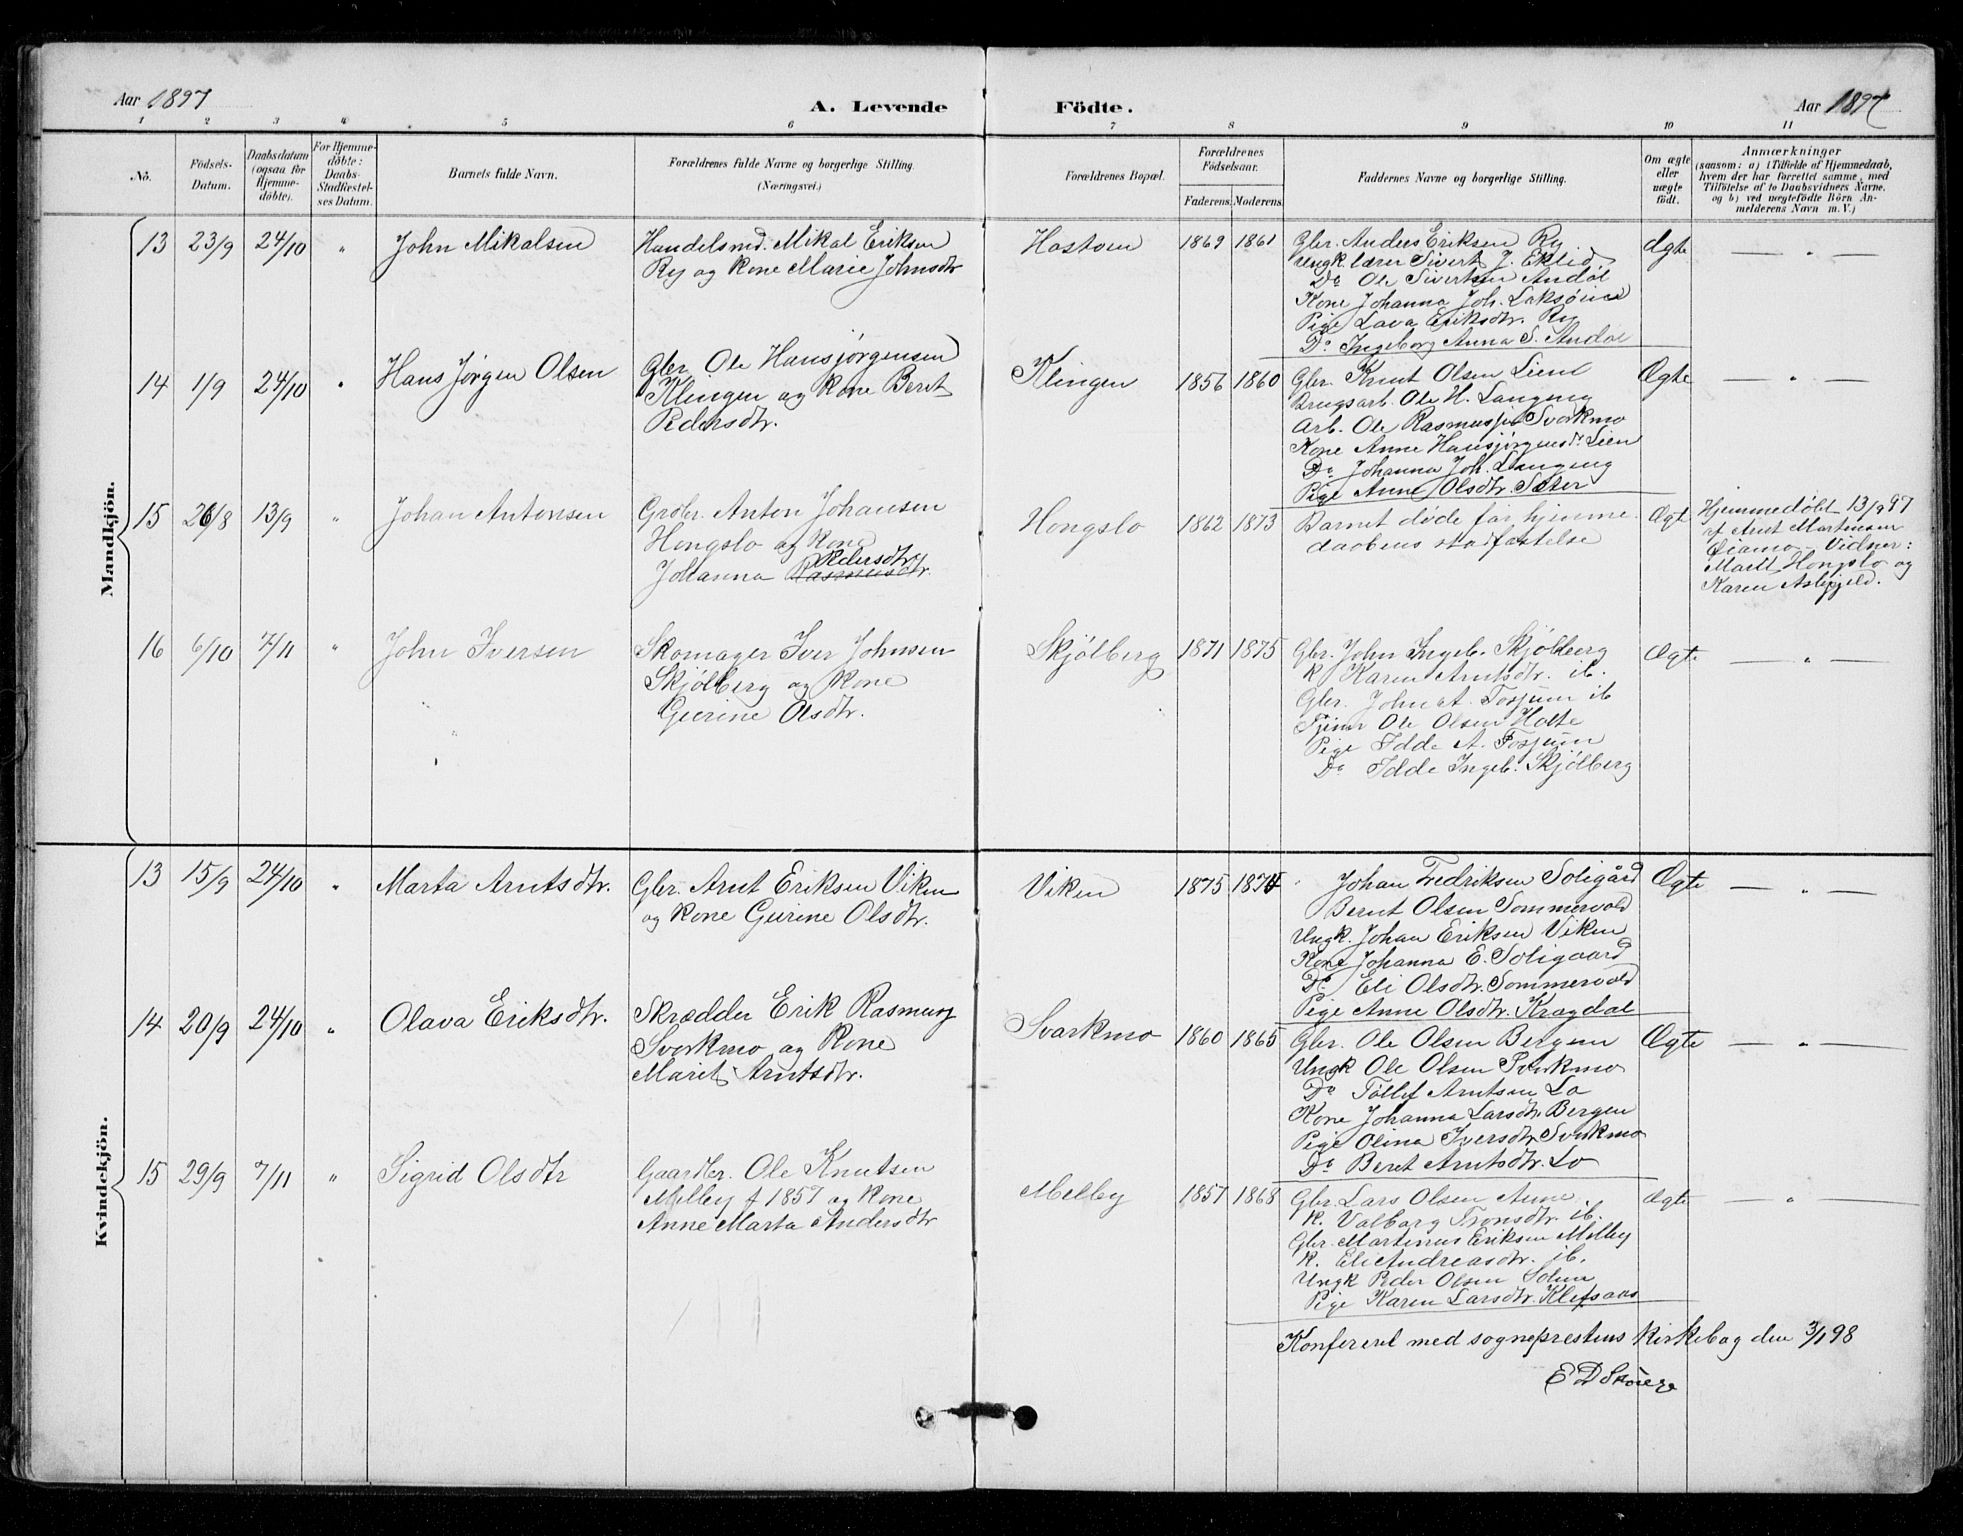 Aar 1897
A. Levende Födte.
Aar 1897
1 2 3 4 5 6 7 8 9 10 11
No.
Födsels-Datum.
Daabsdatum (ogsaa for Hjemme-döbte).
For Hjemme-döbte: Daabs-Stadfæstel-ses Datum.
Barnets fulde Navn.
Forældrenes fulde Navne og borgerlige Stilling.
(Næringsvei.)
Forældrenes Bopæl.
Forældrenes Födselsaar.
Faderens. Moderens.
Faddernes Navne og borgerlige Stilling.
Om ægte eller uægte födt.
Anmærkninger
(saasom: a) i Tilfælde af Hjemmedaab,
hvem der har forrettet samme, med
Tilföielse af to Daabsvidners Navne.
og b) ved uægtefödte Börn An-
melderens Navn m. V.)
Mandkjön.
13 23/9 24/10 " John Mikalsen
Handelsmd. Mikal Eriksen
Ry og Kone Marie Johnsdtr
Hostoen 1869 1861
Gbr. Anders Eriksen Ry
Ungk. lærer Sivert J. Eklid
Do Ole Sivertsen Andøl
Kone Johanna Joh. Laksøien
Pige Lava Eriksdtr. Ry
Do Ingeborg Anna S. Andøl
Ægte — " —
14 1/9 24/10 " Hans Jørgen Olsen
Gbr. Ole Hansjørgensen
Klingen og Kone Beret
Pedersdtr.
Klingen 1856 1860
Gbr. Knut Olsen Lien
Brugsarb. Ole H. Langeng
Arb. Ole Rasmussen Svorkmo
Kone Anne Hansjørgensdt. Lien
Do Johanna Joh. Langeng
Pige Anne Olsdtr. Sæter
Ægte — " —
15 26/8 13/9 " Johan Antonsen
Grdbr. Anton Johansen
Hongslo og Kone
Johanna Rasmusdtr. Pedersdtr.
Hongslo 1862 1873
Barnet døde før hjemme-
daabens stadfæstelse
Ægt
Hjemmedøbt 13/9 97
af Arnt Martinsen
Vidner:
Marit Hongslo og
Karen Asbjøjeld.
16 6/10 7/11 " John Iversen
Skomager Iver Johnsen
Skjølberg og Kone
Gurine Olsdtr.
Skjølberg 1871 1875
Gbr. John Ingeb. Skjølberg
K Karen Arntsdtr. ib.
Gbr. John A. Fosjum ib
Tjener Ole Olsen Holte
Pige Idde A. Fosjum
Do Idde Ingeb. Skjølberg
Ægte — " —
Kvindekjön.
13 15/9 24/10 " Marta Arntsdtr.
Gbr. Arnt Eriksen Viken
og Kone Gurine Olsdtr.
Viken 1875 1874
" Johan Fredriksen Soligård
Bernt Olsen Sommervold
Ungk. Johan Eriksen Viken
Kone Johanna E. Soligaard
Do Eli Olsdtr. Sommervold
Pige Anne Olsdtr. Kragdal
Ægte — " —
14 20/9 24/10 " Olava Eriksdtr.
Skrædder Erik Rasmuss
Svorkmo og Kone
Marit Arntsdtr.
Svorkmo 1860 1865
Gbr. Ole Olsen Bergen
Ungk Ole Olsen Svorkmo
Do Tøllef Arntsen Lo
Kone Johanna Larsdtr. Bergen
Pige Olina Iversdtr. Svorkmo
Do Beret Arntsdtr. Lo
Ægte — " —
15 29/9 7/11 " Sigrid Olsdtr
Gaardbr. Ole Knutsen
Melby f 1857 og Kone
Anne Marta Andersdtr
Melby 1857 1868
Gbr. Lars Olsen Aune
K. Valborg Tronsdtr. ib.
Gbr. Martinus Eriksen Melby
K. Eli Andreasdtr. ib.
Ungk Peder Olsen Solem
Pige Karen Larsdtr. Klefsaas
Ægte — " —
Konfereret med sogneprestens kirkebog den 3/1 98